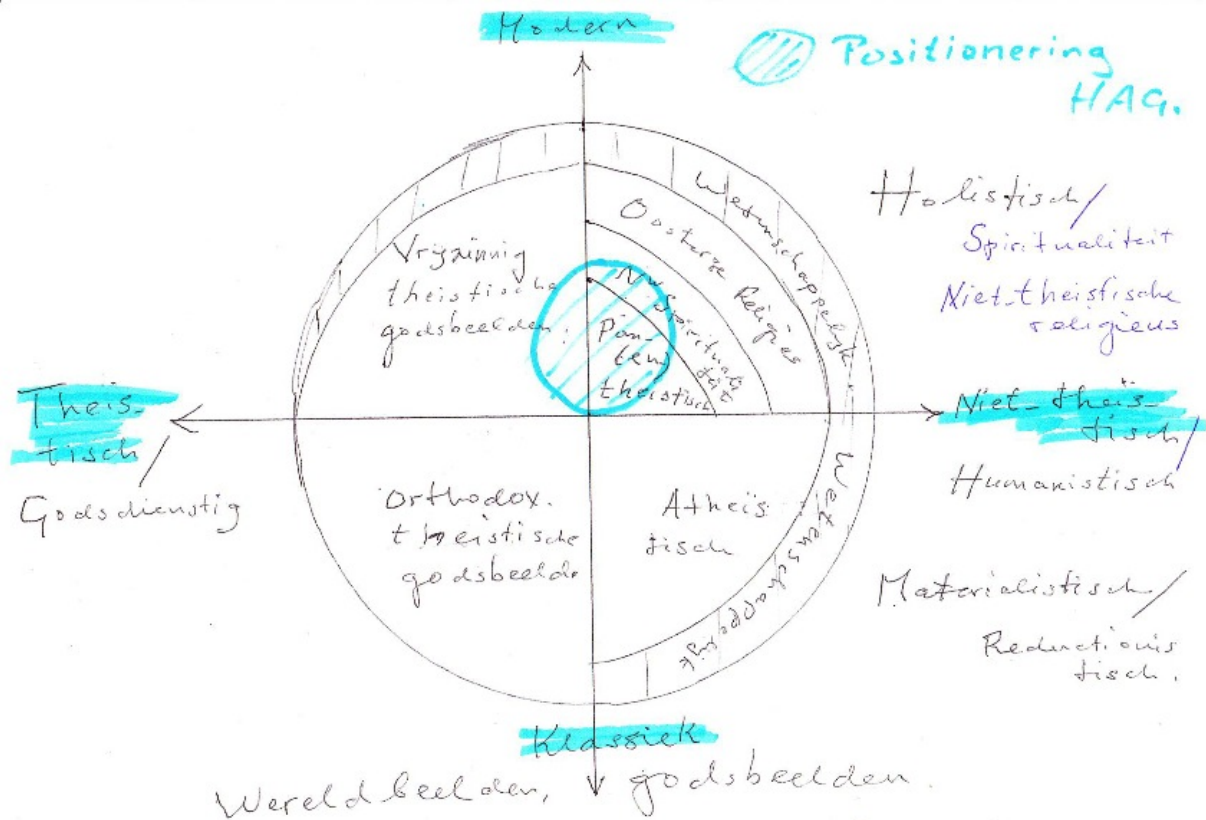 Modern
Positionering
HAG.
Holistisch/
Spiritualiteit
Niet-theistische
religieus
Wetenschappelijk
Oosterse Religies
Nw Spirituali
teit
Pan-
(en)
theistisch
Vrijzinnig
theistische
godsbeelden.
Theis-
tisch
Godsdienstig
Niet-theis-
tisch/
Humanistisch
Orthodox.
theistische
godsbeelde.
Atheis
tisch
Wetenschappelijk
Materialistisch/
Reductionis
tisch.
Klassiek
Wereldbeelden, godsbeelden.